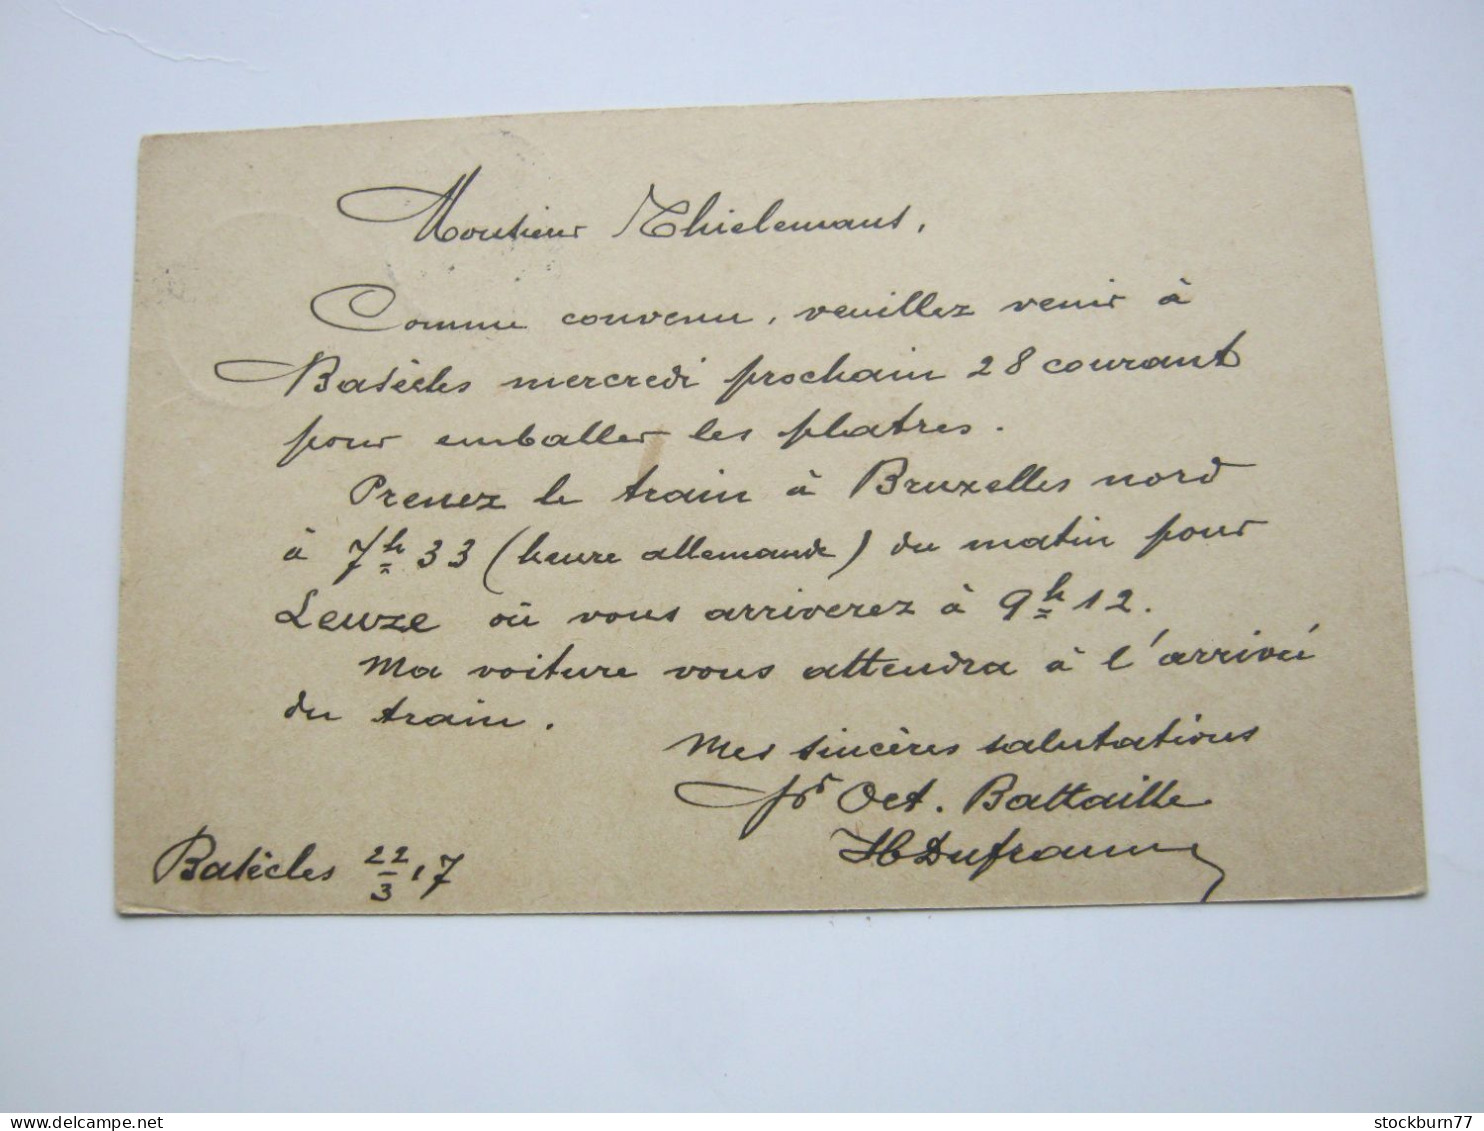 Monsieur Thielemans,
Comme convenu, veuillez venir à
Basècles mercredi prochain 28 courant
pour emballer les platres.
Prenez le train à Bruxelles nord
à 7h 33 (heure allemande) du matin pour
Leuze où vous arriverez à 9h 12.
Ma voiture vous attendra à l'arrivée
du train.
Mes sincères salutations
pr Oct. Battaille
HDufranne
Basècles 22/3 17
delcampe.net
stockburn77